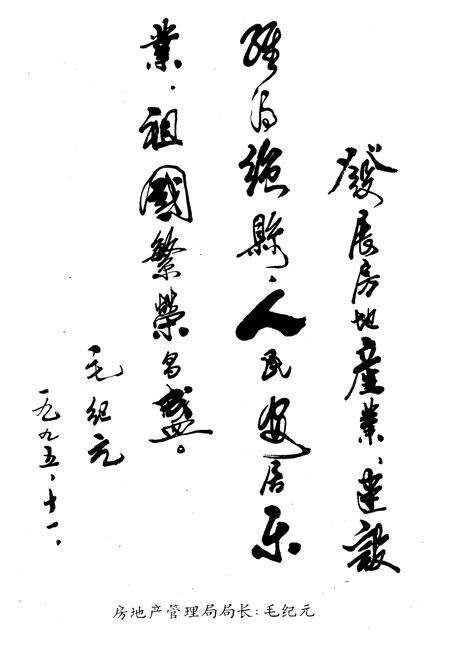 發展房地產業、建設
經濟強縣、人民安居乐
業、祖國繁榮昌盛。
毛紀元
一九九五、十一、
房地产管理局局长:毛纪元